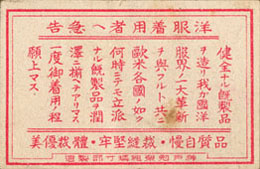 洋服着用者へ急告
健全ナル既製品
ヲ造リ我カ國洋
服界ノ一大革新
ヲ與フルト共ニ
歐米各國ノ如ク
何時ニテモ立派
ナル既製品ヲ潤
澤ニ揃ヘテアリマス
一度御着用程
願上マス
品質自慢・裁縫堅牢・體裁優美